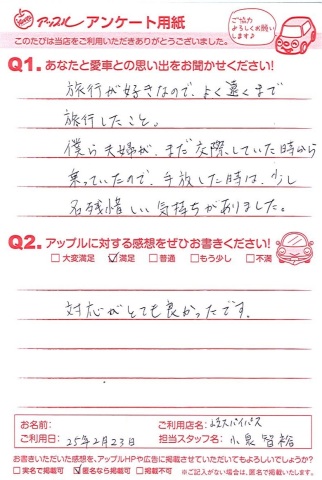 アップル アンケート用紙
このたびは当店をご利用いただきありがとうございました。
ご協力
よろしくお願い
します♪
Q1. あなたと愛車との思い出をお聞かせください!
旅行が好きなので、よく遠くまで
旅行したこと。
僕ら夫婦が、まだ交際していた時から
乗っていたので、手放した時は、少し
名残惜しい気持ちがありました。
Q2. アップルに対する感想をぜひお書きください!
□大変満足 ☑満足 □普通 □もう少し □不満
対応がとても良かったです。
お名前: ご利用店名: バイパス
ご利用日: 25年2月23日 担当スタッフ名: 小泉智裕
お書きいただいた感想を、アップルHPや広告に掲載させていただいてもよろしいでしょうか?
□実名で掲載可 ☑匿名なら掲載可 □掲載不可 ※ご記入がない場合は、匿名で掲載いたします。